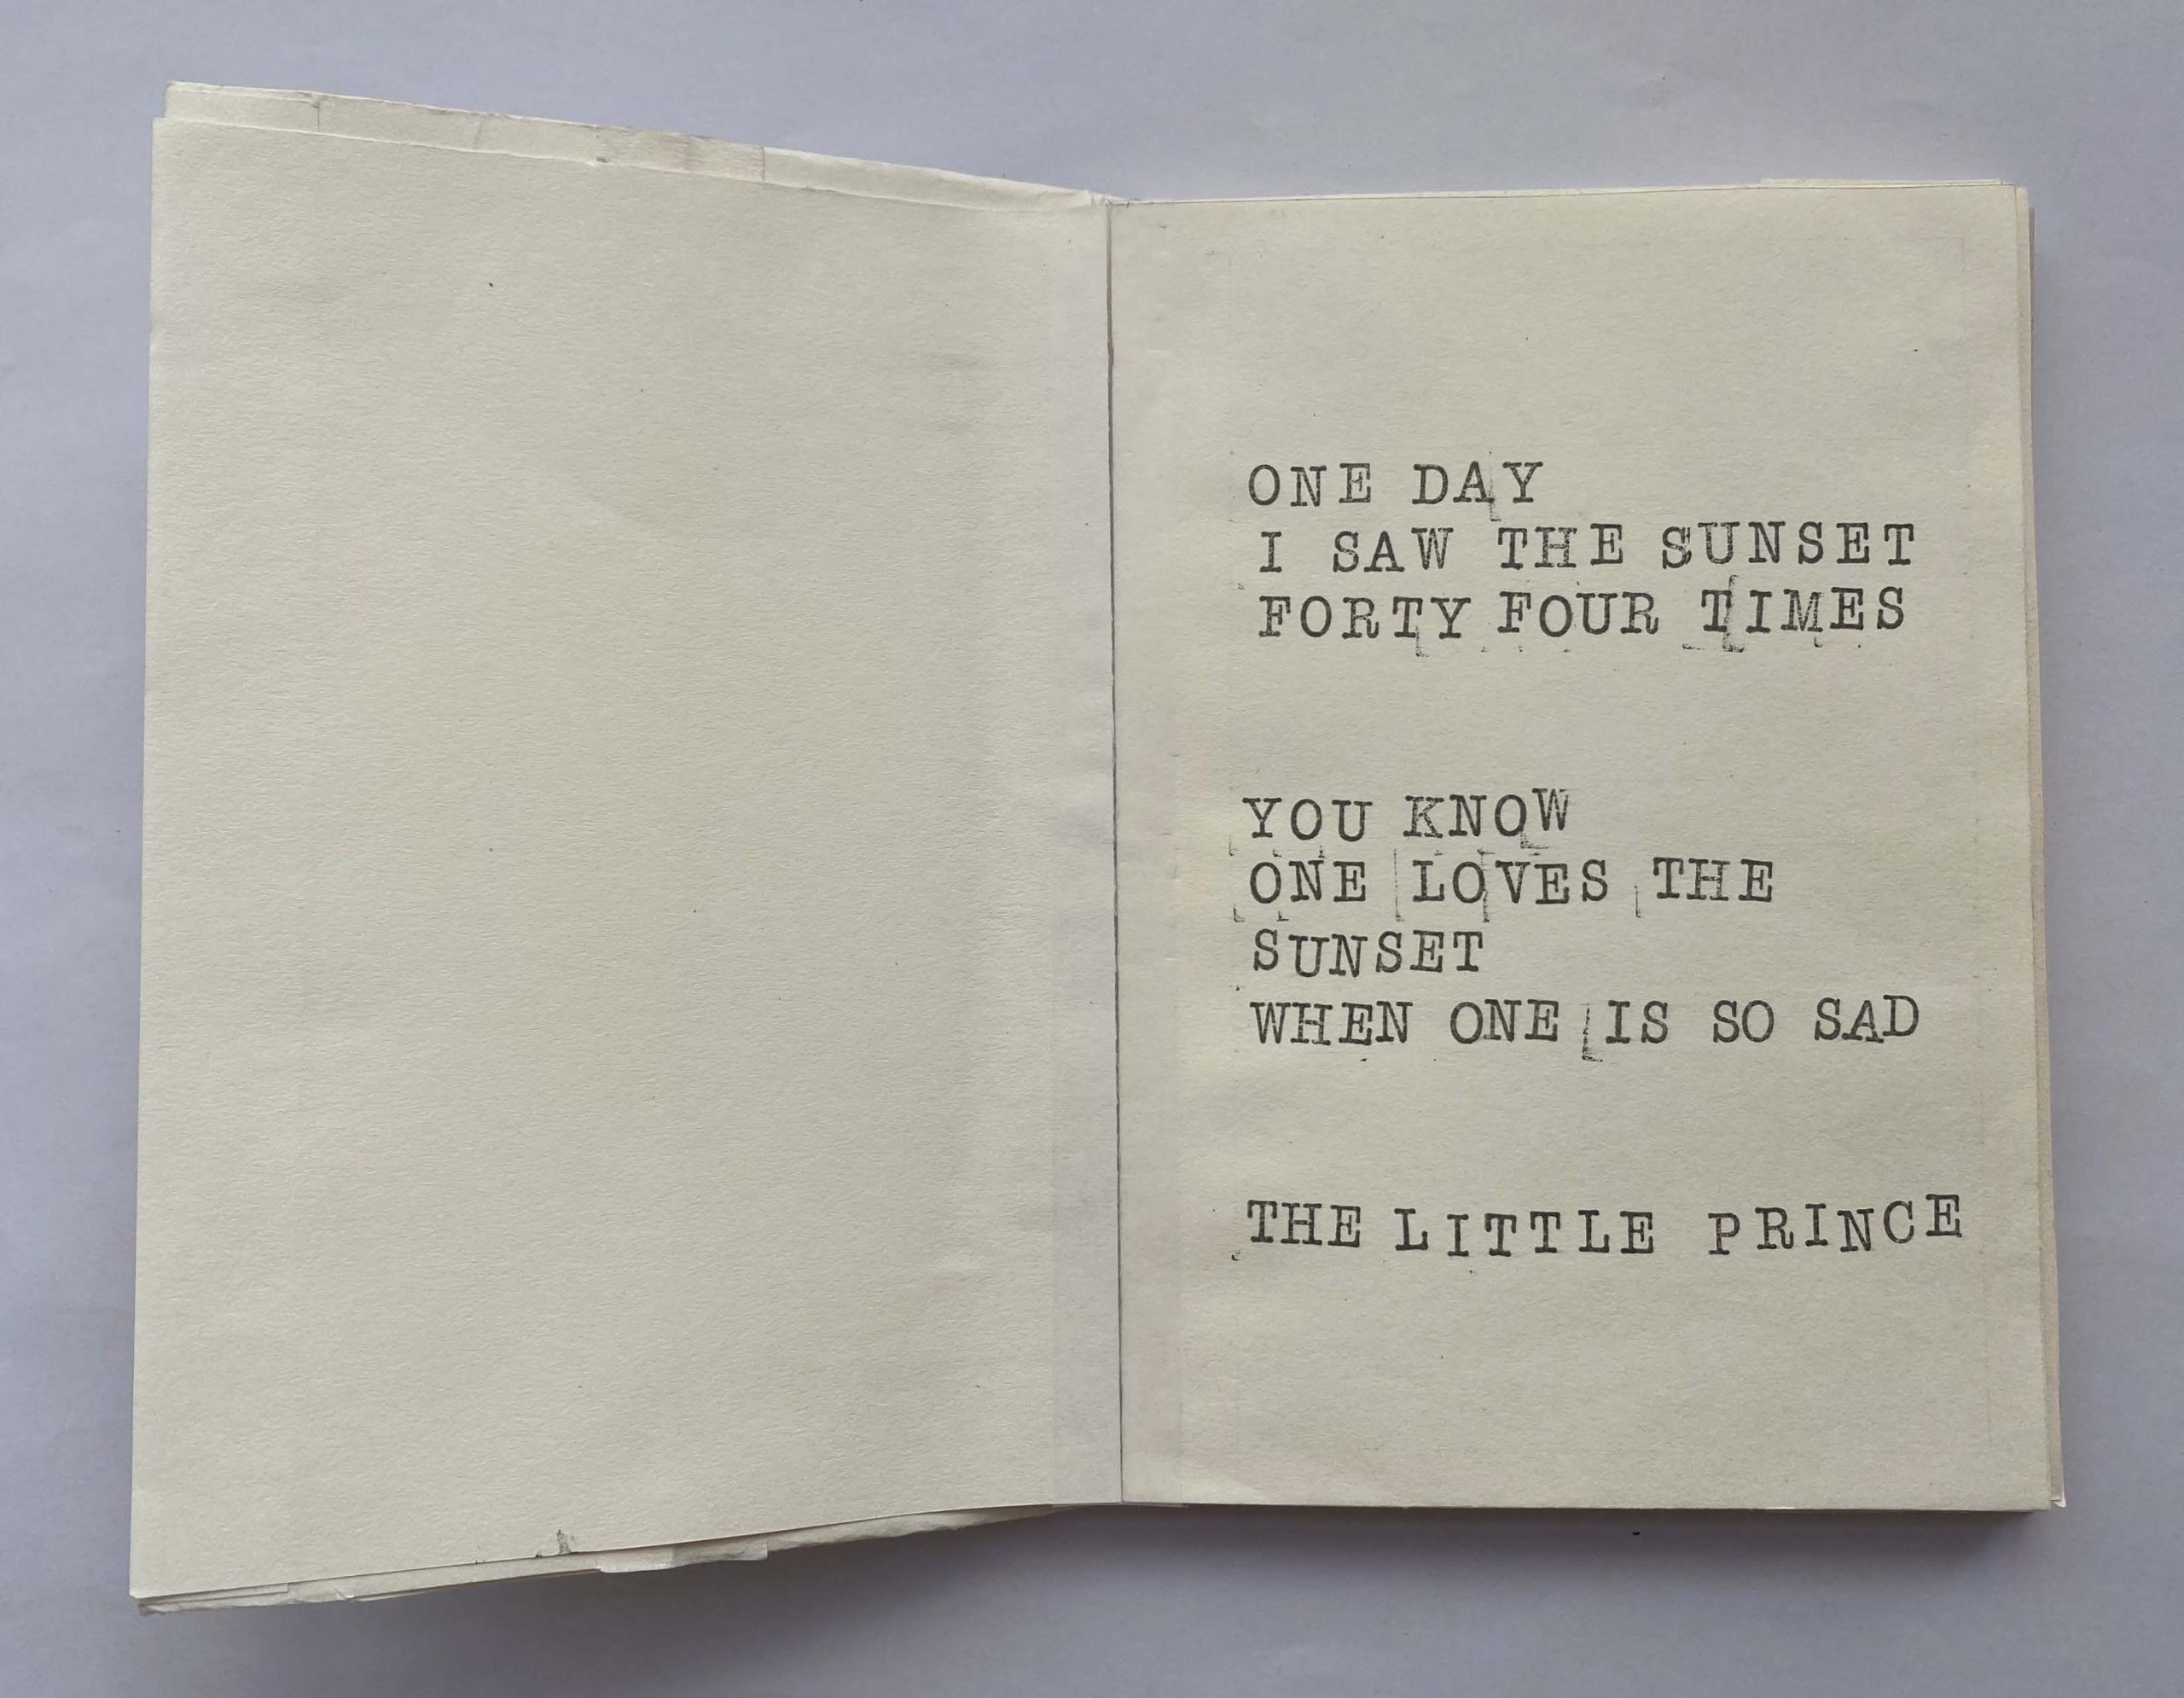 ONE DAY
I SAW THE SUNSET
FORTY FOUR TIMES
YOU KNOW
ONE LOVES THE
SUNSET
WHEN ONE IS SO SAD
THE LITTLE PRINCE